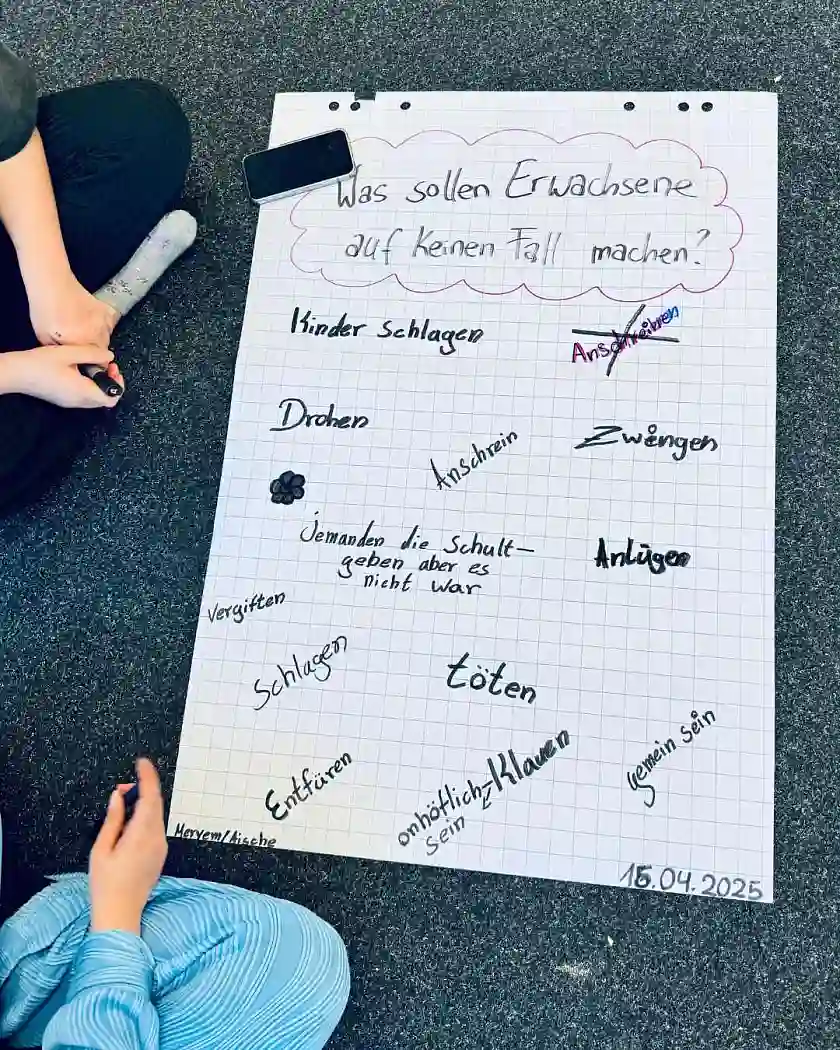 Was sollen Erwachsene
auf keinen Fall machen?
Kinder schlagen
Anschreiben
Drohen
Anschrein
Zwängen
Jemanden die Schult-
geben aber es
nicht war
Anlügen
Vergiften
Schlagen
töten
Entfüren
onhöflich
sein
Klauen
gemein sein
Meryem/Aische
15.04.2025